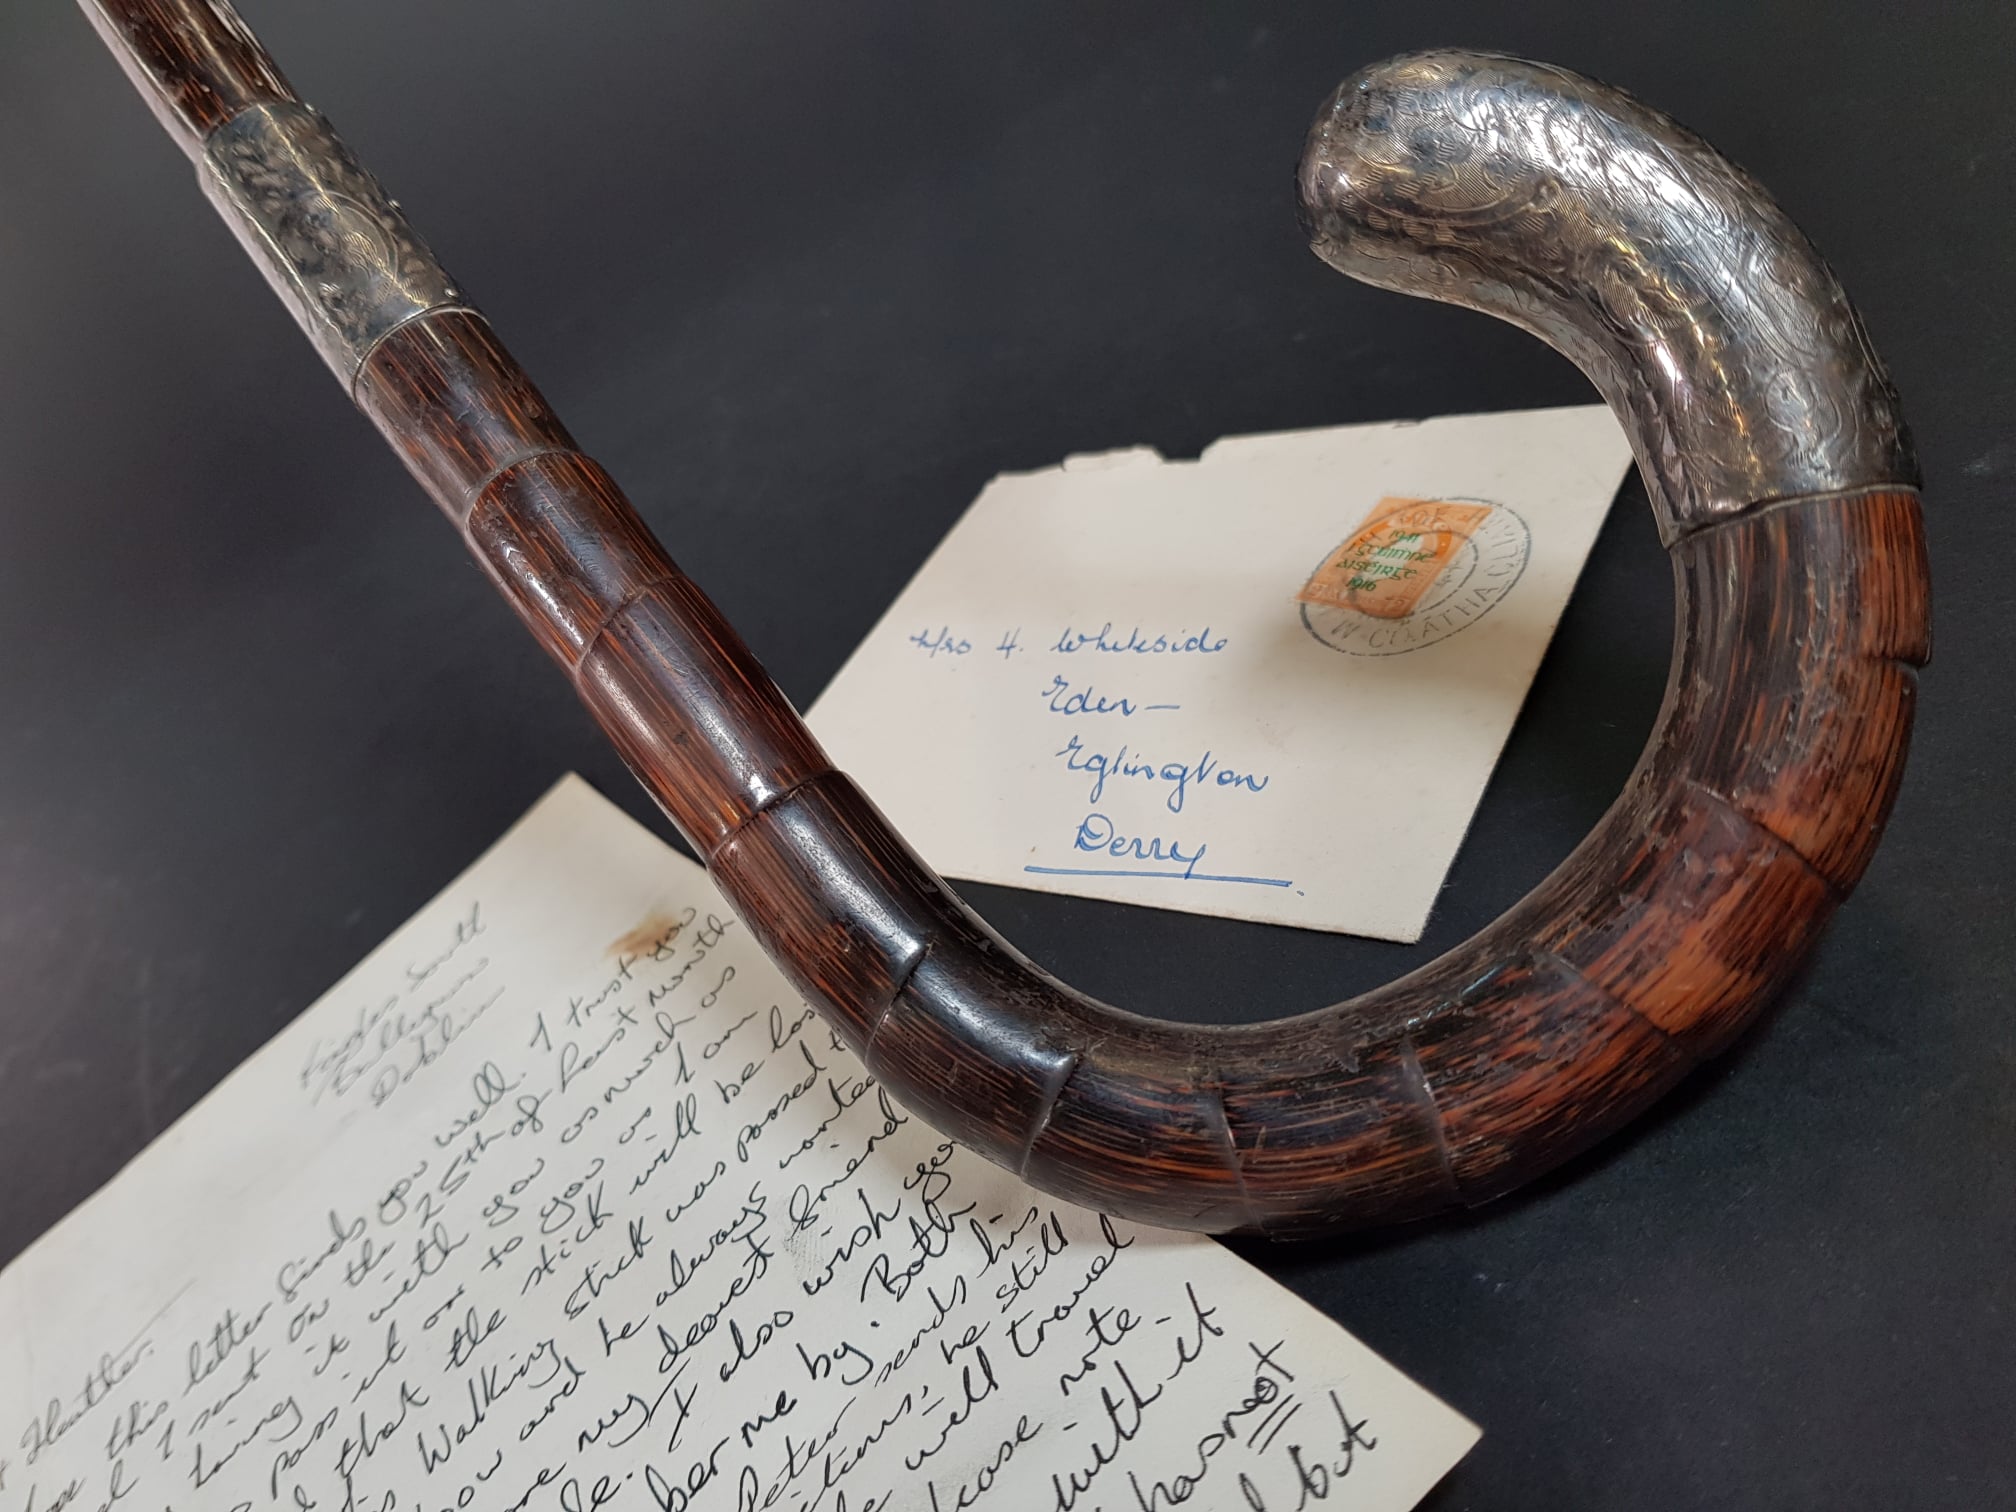 1941
aiséirge
1916
CO. ÁTHA CLI
Mrs H. Whiteside
Eden -
Eglington
Derry
South
Dublin
Heather.
this letter finds you well. I trust you
I sent on the 25th of last month
it with you as much as
pass it on to you as I am
that the stick will be los
Walking stick was passed t
and he always wante
my dearest friend
I also wish you
ber me by. Both
Peter sends his
he still
well travel
ease note -
with it
has not
but